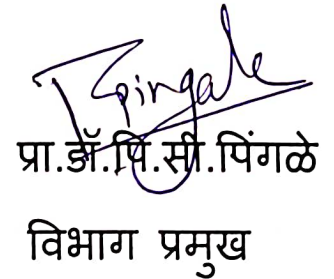 Pingale
प्रा.डॉ.पि.सी.पिंगळे
विभाग प्रमुख